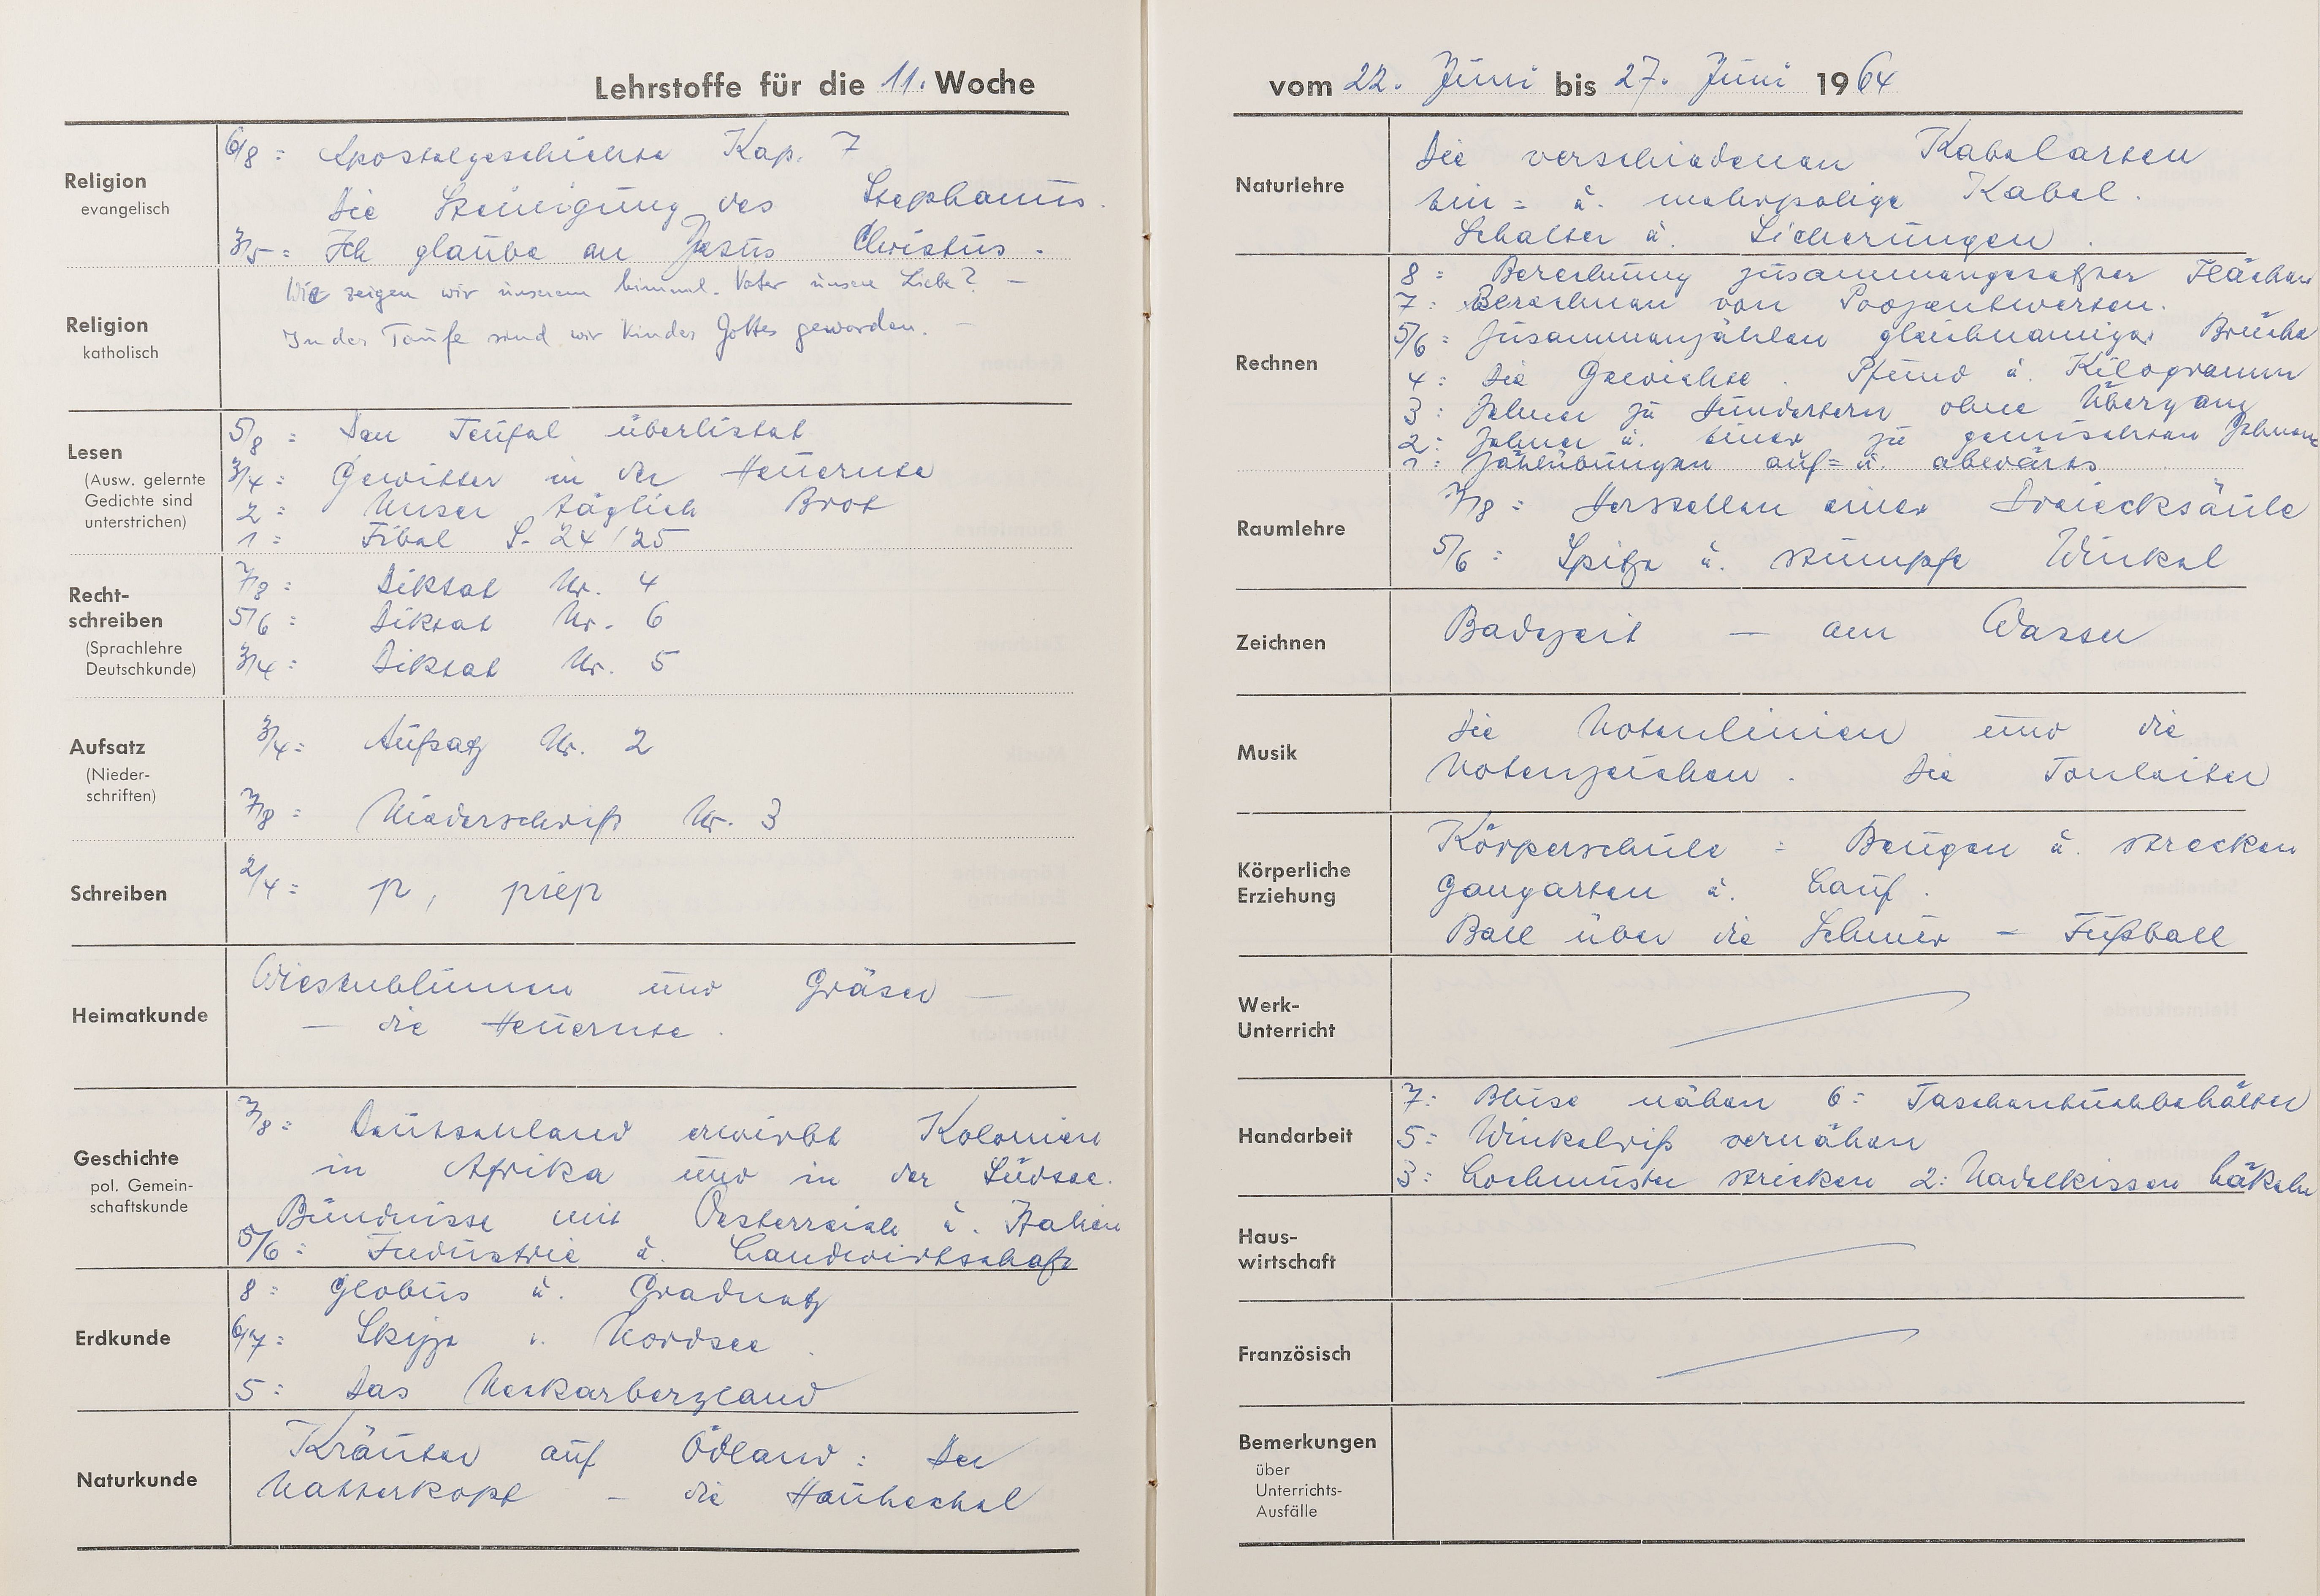 Lehrstoffe für die 11. Woche
Religion
evangelisch
6/8 = Apostelgeschichte Kap. 7
Die Steinigung des Stephanus.
3/5 = Ich glaube an Jesus Christus.
Religion
katholisch
Wie zeigen wir unserem himml. Vater unsere Liebe? —
In der Taufe sind wir Kinder Gottes geworden. —
Lesen
(Ausw. gelernte
Gedichte sind
unterstrichen)
5/8 = Den Teufel überlistet
3/4 = Gewitter in der Heuernte
2 = Unser täglich Brot
1 = Fibel S. 24/25
Recht-
schreiben
(Sprachlehre
Deutschkunde)
7/8 = Diktat Nr. 4
5/6 = Diktat Nr. 6
3/4 = Diktat Nr. 5
Aufsatz
(Nieder-
schriften)
3/4 = Aufsatz Nr. 2
7/8 = Niederschrift Nr. 3
Schreiben
2/4 = p, piep
Heimatkunde
Wiesenblumen und Gräser —
— die Heuernte.
Geschichte
pol. Gemein-
schaftskunde
7/8 = Deutschland erwirbt Kolonien
in Afrika und in der Südsee.
Bündnisse mit Oesterreich u. Italien
5/6 = Industrie u. Landwirtschaft
Erdkunde
8 = Globus u. Gradnetz
6/7 = Skizze v. Nordsee.
5 = Das Neckarbergland
Naturkunde
Kräuter auf Ödland: Der
Natterkopf — die Hauhechel
vom 22. Juni bis 27. Juni 1964
Naturlehre
Die verschiedenen Kabelarten
Ein= u. mehrpolige Kabel.
Schalter u. Sicherungen.
Rechnen
8 = Berechnung zusammengesetzter Flächen
7 = Berechnen von Prozentwerten.
5/6 = Zusammenzählen gleichnamiger Brüche
4 = Die Gewichte. Pfund u. Kilogramm
3 = Zehner zu Hundertern ohne Übergang
2 = Zehner u. Einer zu gemischten Zehnern
1 = Zählübungen auf= u. abwärts
Raumlehre
7/8 = Herstellen einer Dreiecksäule
5/6 = Spitze u. stumpfe Winkel
Zeichnen
Badezeit — am Wasser
Musik
Die Notenlinien und die
Notenzeichen. Die Tonleiter
Körperliche
Erziehung
Körperschule = Beugen u. strecken
Gangarten u. Lauf.
Ball über die Schnur — Fußball
Werk-
Unterricht
Handarbeit
7 = Bluse nähen 6 = Taschentuchbehälter
5 = Winkelriß vernähen
3 = Lochmuster stricken 2: Nadelkissen häkeln
Haus-
wirtschaft
Französisch
Bemerkungen
über
Unterrichts-
Ausfälle